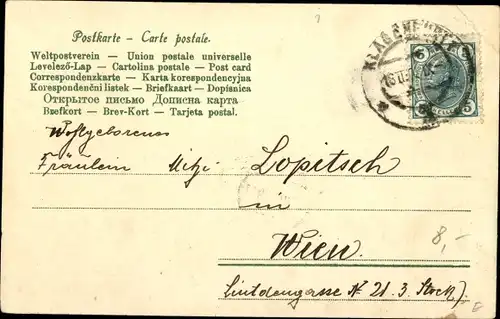 Postkarte – Carte postale.
Weltpostverein — Union postale universelle
Levelező-Lap — Cartolina postale — Post card
Correspondenzkarte — Karta korespondencyjna
Korespondenční listek — Briefkaart — Dopisnica
Открытое письмо Дописна карта
Brefkort — Brev-Kort — Tarjeta postal.
KLAGENFURT
5 5
Wohlgeborenes
Fräulein Mitzi Lopitsch
in
Wien.
8,-
Lindengasse N 21. 3. Stock)